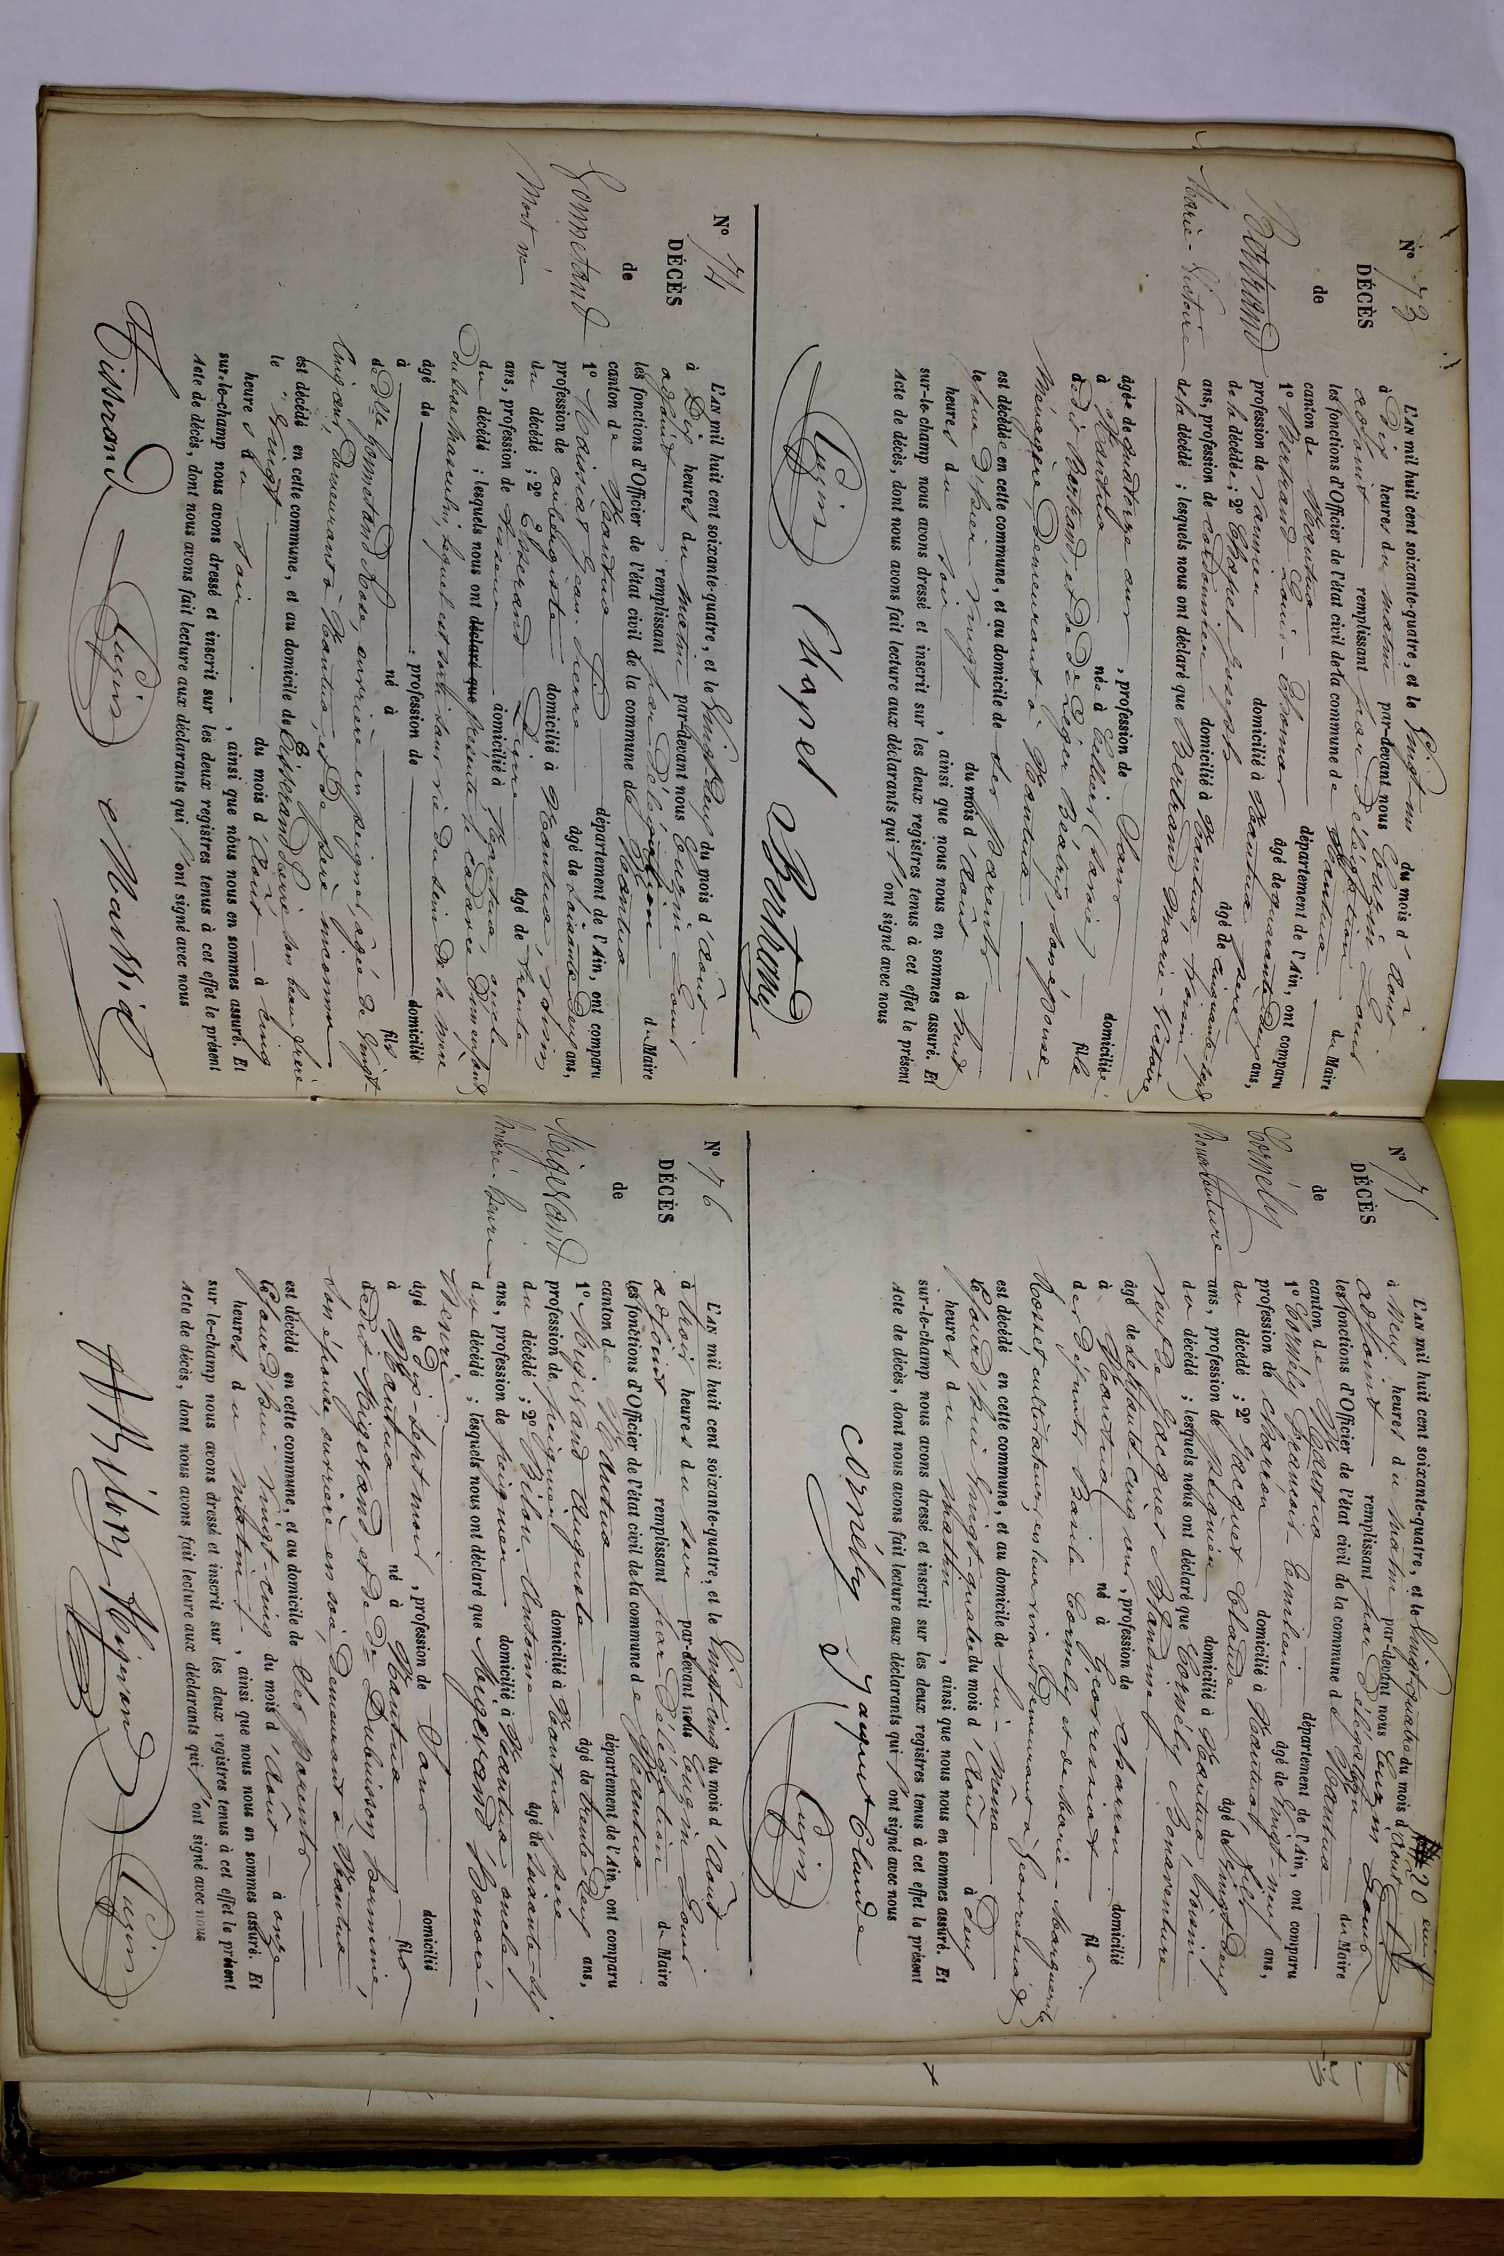 N° 73
DÉCÈS
de
Bertrand
Marie-Victoire
L'AN mil huit cent soixante-quatre, et le Vingt-un du mois d'Août
à Dix heures du matin par-devant nous Cougin Louis
adjoint remplissant par Délégation du Maire
les fonctions d'Officier de l'état civil de la commune de Nantua
canton de Nantua département de l'Ain, ont comparu
1° Bertrand Louis- âgé de quarante-deux ans,
profession de vannier domicilié à Nantua père
de la décédée; 2° Chapel Joseph âgé de cinquante-sept
ans, profession de cordonnier domicilié à Nantua, voisin
de la décédé; lesquels nous ont déclaré que Bertrand Marie-Victoire
âgée de quatorze ans, profession de Sans domiciliée
à Nantua née à fille
de dit Bertrand, et de De Léger Béatrix, son épouse,
Ménagère, Demeurant à Nantua
est décédée en cette commune, et au domicile de ses parents
le jour d'hier vingt du mois d'Août à huit
heures du soir, ainsi que nous nous en sommes assuré. Et
sur-le-champ nous avons dressé et inscrit sur les deux registres tenus à cet effet le présent
Acte de décès, dont nous avons fait lecture aux déclarants qui l'ont signé avec nous
Chapel Bertrand
N° 74
DÉCÈS
de
Gommetand
Mort né
L'AN mil huit cent soixante-quatre, et le Vingt-deux du mois d'Août
à Dix heures du matin par-devant nous Cougin Louis
adjoint remplissant par Délégation du Maire
les fonctions d'Officier de l'état civil de la commune de Nantua
canton de Nantua département de l'Ain, ont comparu
1° Massiat Jean-Pierre âgé de soixante-deux ans,
profession de aubergiste domicilié à Nantua, voisin
du décédé; 2° Tisserand Pierre âgé de trente
ans, profession de domicilié à Nantua, oncle
du décédé; lesquels nous ont déclaré que présenté le cadavre d'un enfant
du sexe masculin, lequel est sorti sans vie du sein de sa mère
âgé de profession de domicilié
à né à fils
de Dlle Gommetand Rose, ouvrière en peignes, âgée de Vingt
cinq ans, Demeurant à Nantua, et De père inconnu
est décédé en cette commune, et au domicile de Tisserand Pierre, son beau-frère
le Vingt du mois d'Août à cinq
heures du soir, ainsi que nous nous en sommes assuré. Et
sur-le-champ nous avons dressé et inscrit sur les deux registres tenus à cet effet le présent
Acte de décès, dont nous avons fait lecture aux déclarants qui l'ont signé avec nous
Tisserand Massiat
N° 75
DÉCÈS
de
Cornély
Bonaventure
L'AN mil huit cent soixante-quatre, et le Vingt-quatre du mois d'Août
à Neuf heures du matin par-devant nous Cougin Louis
adjoint remplissant par Délégation du Maire
les fonctions d'Officier de l'état civil de la commune de Nantua
canton de Nantua département de l'Ain, ont comparu
1° Cornély François-Emilien âgé de Vingt-neuf ans,
profession de charron domicilié à Nantua, fils
du décédé; 2° Jacquet Claude âgé de Vingt-deux
ans, profession de peignier domicilié à Nantua, voisin
du décédé; lesquels nous ont déclaré que Cornély Bonaventure
veuf de Jacquet
âgé de septante-cinq ans, profession de charron domicilié
à Nantua, né à Géovressiat fils
des défunts Basile Cornély et de Marie-Marguerite
Rosset, cultivateurs, en leur vivant Demeurant à Géovressiat
est décédé en cette commune, et au domicile de lui-même
le jourd'hui Vingt-quatre du mois d'Août à deux
heures du matin, ainsi que nous nous en sommes assuré. Et
sur-le-champ nous avons dressé et inscrit sur les deux registres tenus à cet effet le présent
Acte de décès, dont nous avons fait lecture aux déclarants qui l'ont signé avec nous
cornély Jaquet Claude
N° 76
DÉCÈS
de
Migerand
Honoré-Henri
L'AN mil huit cent soixante-quatre, et le Vingt-cinq du mois d'Août
à trois heures du soir par-devant nous Cougin Louis
adjoint remplissant par Délégation du Maire
les fonctions d'Officier de l'état civil de la commune de Nantua
canton de Nantua département de l'Ain, ont comparu
1° Migerand Auguste âgé de trente-deux ans,
profession de peignier domicilié à Nantua, père
du décédé; 2° Bilon Antoine âgé de soixante-six
ans, profession de peignier domicilié à Nantua oncle
du décédé; lesquels nous ont déclaré que Migerand Honoré-
Henri
âgé de Dix-sept mois, profession de Sans domicilié
à Nantua né à Nantua fils
de dit Migerand et de De Dubuisson
son épouse, ouvrière en soie, Demeurant à Nantua
est décédé en cette commune, et au domicile de ses parents
le jourd'hui vingt-cinq du mois d'Août à onze
heures du matin, ainsi que nous nous en sommes assuré. Et
sur-le-champ nous avons dressé et inscrit sur les deux registres tenus à cet effet le présent
Acte de décès, dont nous avons fait lecture aux déclarants qui l'ont signé avec nous
Bilon Migerand